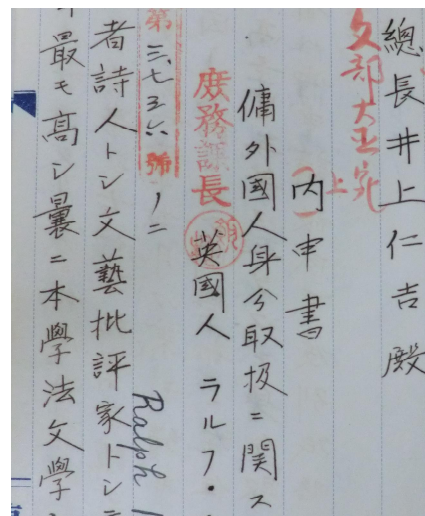 總長井上仁吉殿
文部大臣宛
上
内申書
傭外國人身分取扱ニ関ス
庶務課長
英國人 ラルフ・
第三七三六號ノ二
Ralph
者詩人トシ文藝批評家トシ
最モ高シ曩ニ本學法文學